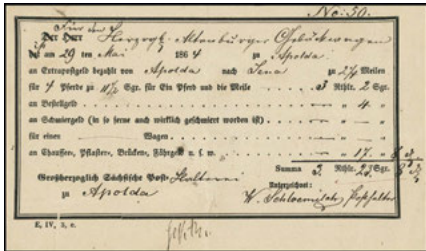 No: 50.
Für den
Der Herr Herzogl. Altenburger Gepäckwagen
hat am 29 ten Mai 1864 zu Apolda
an Extrapostgeld bezahlt von Apolda nach Jena zu 2¼ Meilen
für 4 Pferde zu Sgr. für Ein Pferd und die Meile 3 Rthlr. 2 Sgr.
an Bestellgeld „ 4 „
an Schmiergeld (in so ferne auch wirklich geschmiert worden ist) „ — „
für einen Wagen „ — „
an Chaussee-, Pflaster-, Brücken-, Fährgeld u. s. w. „ 17. „ 8
Summa 3. Rthlr. 23 Sgr. 8
Großherzoglich Sächsische Post-Halterei
Unterzeichnet:
zu Apolda W. Posthalter
E. IV, 3, c.